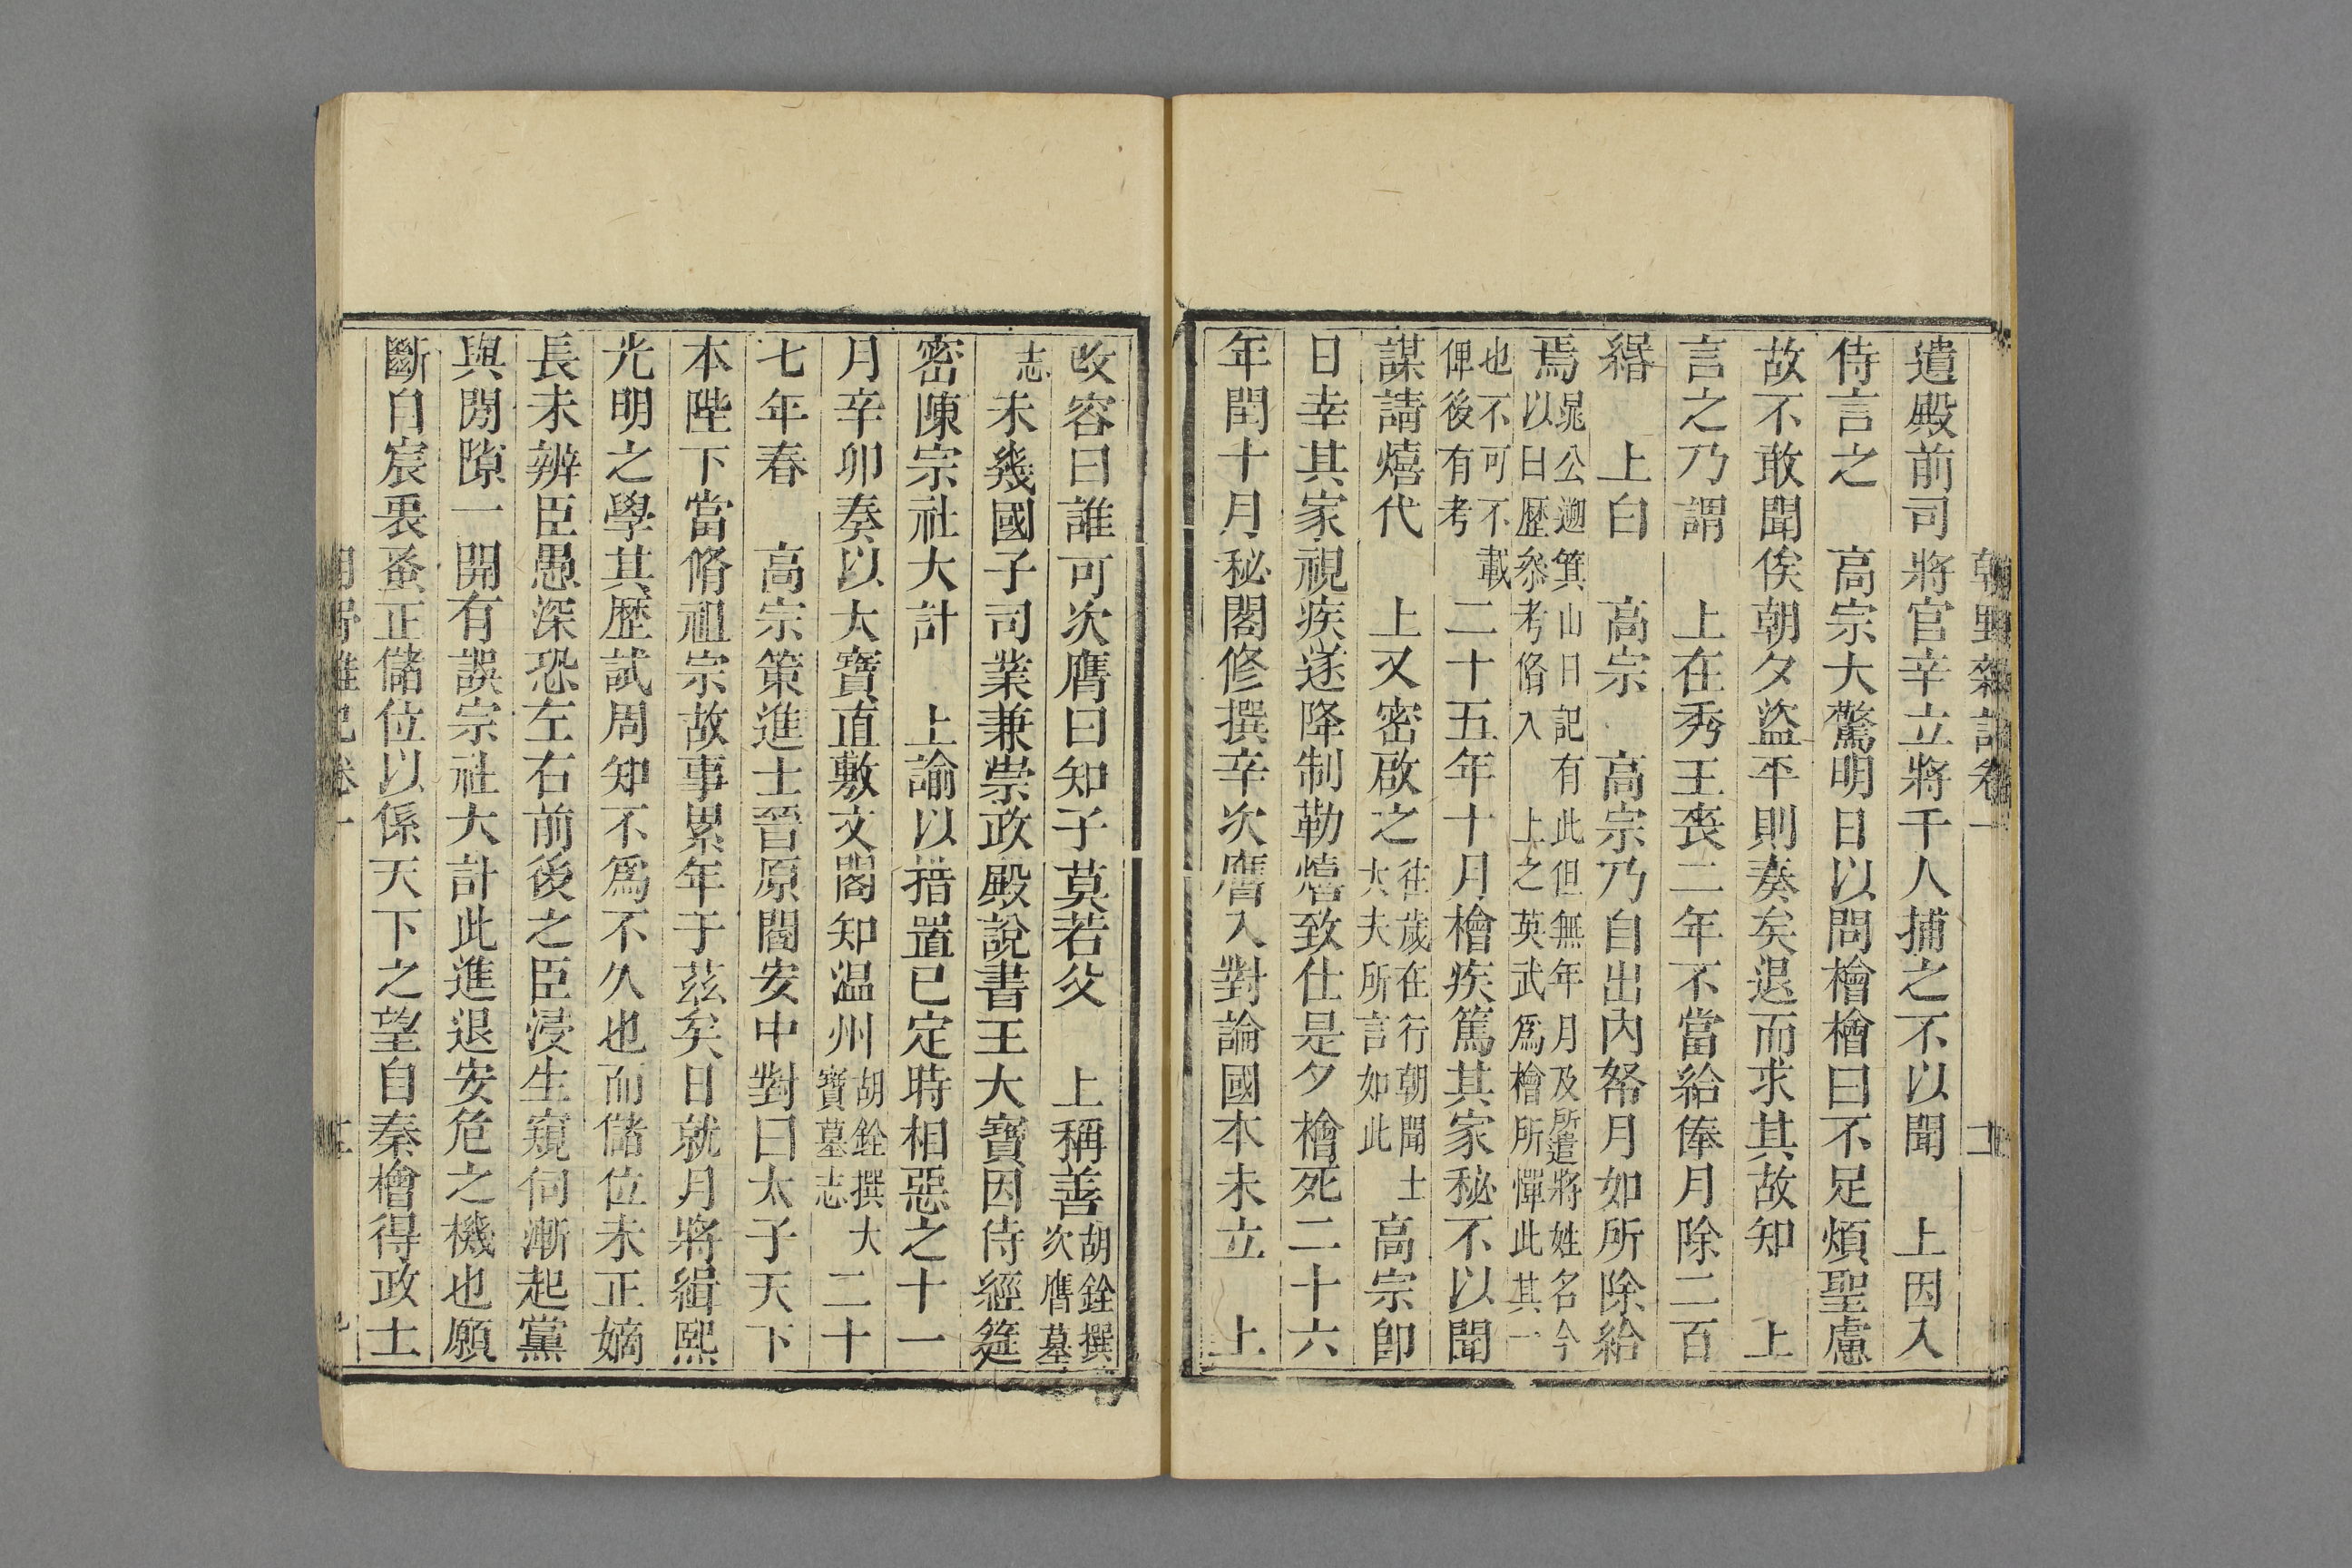 朝野雜記卷一
遣殿前司將官辛立將千人捕之不以聞　上因入
侍言之　高宗大驚明日以問檜檜曰不足煩聖慮
故不敢聞俟朝夕盜平則奏矣退而求其故知　上
言之乃謂　上在秀王喪二年不當給俸月除二百
緡　上白　高宗　高宗乃自出內帑月如所除給
焉晁公遡箕山日記有此但無年月及所遣將姓名今
以日歷叅考脩入　上之英武爲檜所憚此其一
也不可不載
俾後有考　二十五年十月檜疾篤其家秘不以聞
謀請熺代　上又密啟之往歲在行朝聞士
大夫所言如此　高宗卽
日幸其家視疾遂降制勒熺致仕是夕檜死二十六
年閏十月秘閣修撰辛次膺入對論國本未立　上
改容曰誰可次膺曰知子莫若父　上稱善胡銓撰
次膺墓
志　未幾國子司業兼崇政殿說書王大寶因侍經筵
密陳宗社大計　上諭以措置已定時相惡之十一
月辛卯奏以大寶直敷文閣知温州胡銓撰大
寶墓志　二十
七年春　高宗策進士晉原閻安中對曰太子天下
本陛下當脩祖宗故事累年于兹矣日就月將緝熙
光明之學其歷試周知不爲不久也而儲位未正嫡
長未辨臣愚深恐左右前後之臣浸生窺伺漸起黨
與閒隙一開有誤宗社大計此進退安危之機也願
斷自宸衷蚤正儲位以係天下之望自秦檜得政士